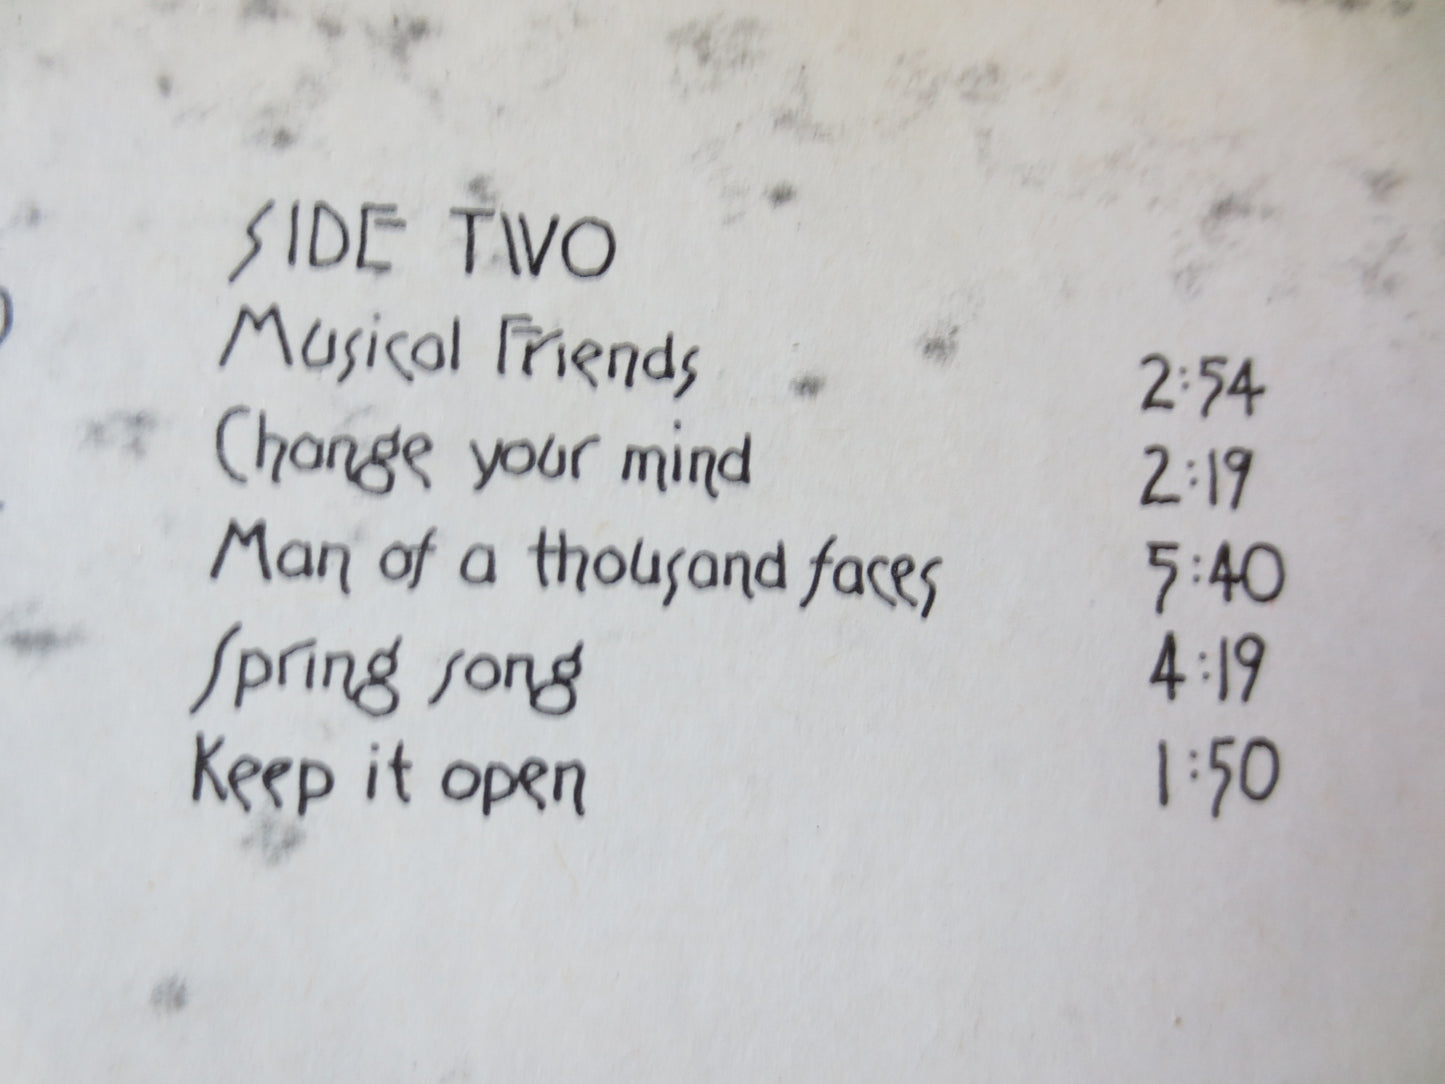 SIDE TWO
Musical Friends 2:54
Change your mind 2:19
Man of a thousand faces 5:40
Spring song 4:19
Keep it open 1:50